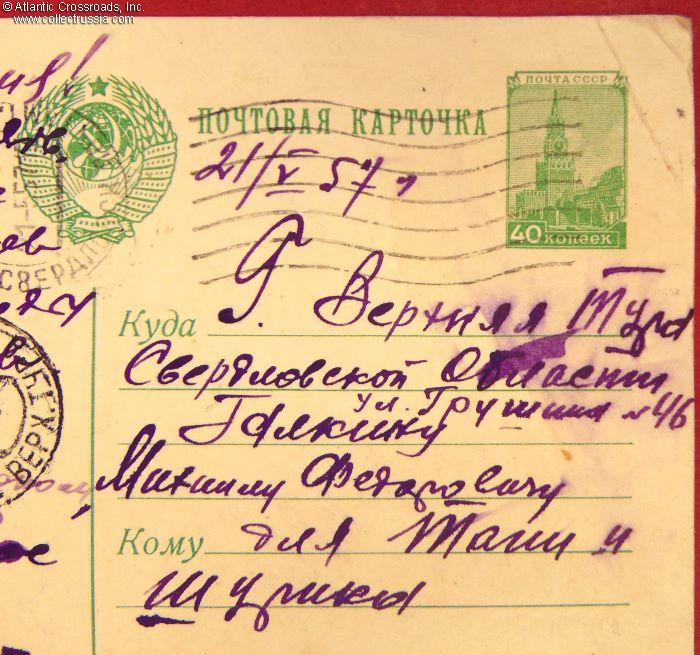 © Atlantic Crossroads, Inc.
www.collectrussia.com
ПОЧТА СССР
ПОЧТОВАЯ КАРТОЧКА
21/V 57 г
40 КОПЕЕК
СВЕРДЛ
Куда г. Верхняя Тура
Свердловской Области
ул. Грушина № 46
Галкину
Михаилу Федоровичу
Кому для Тани и
Шурика
ВЕРХ